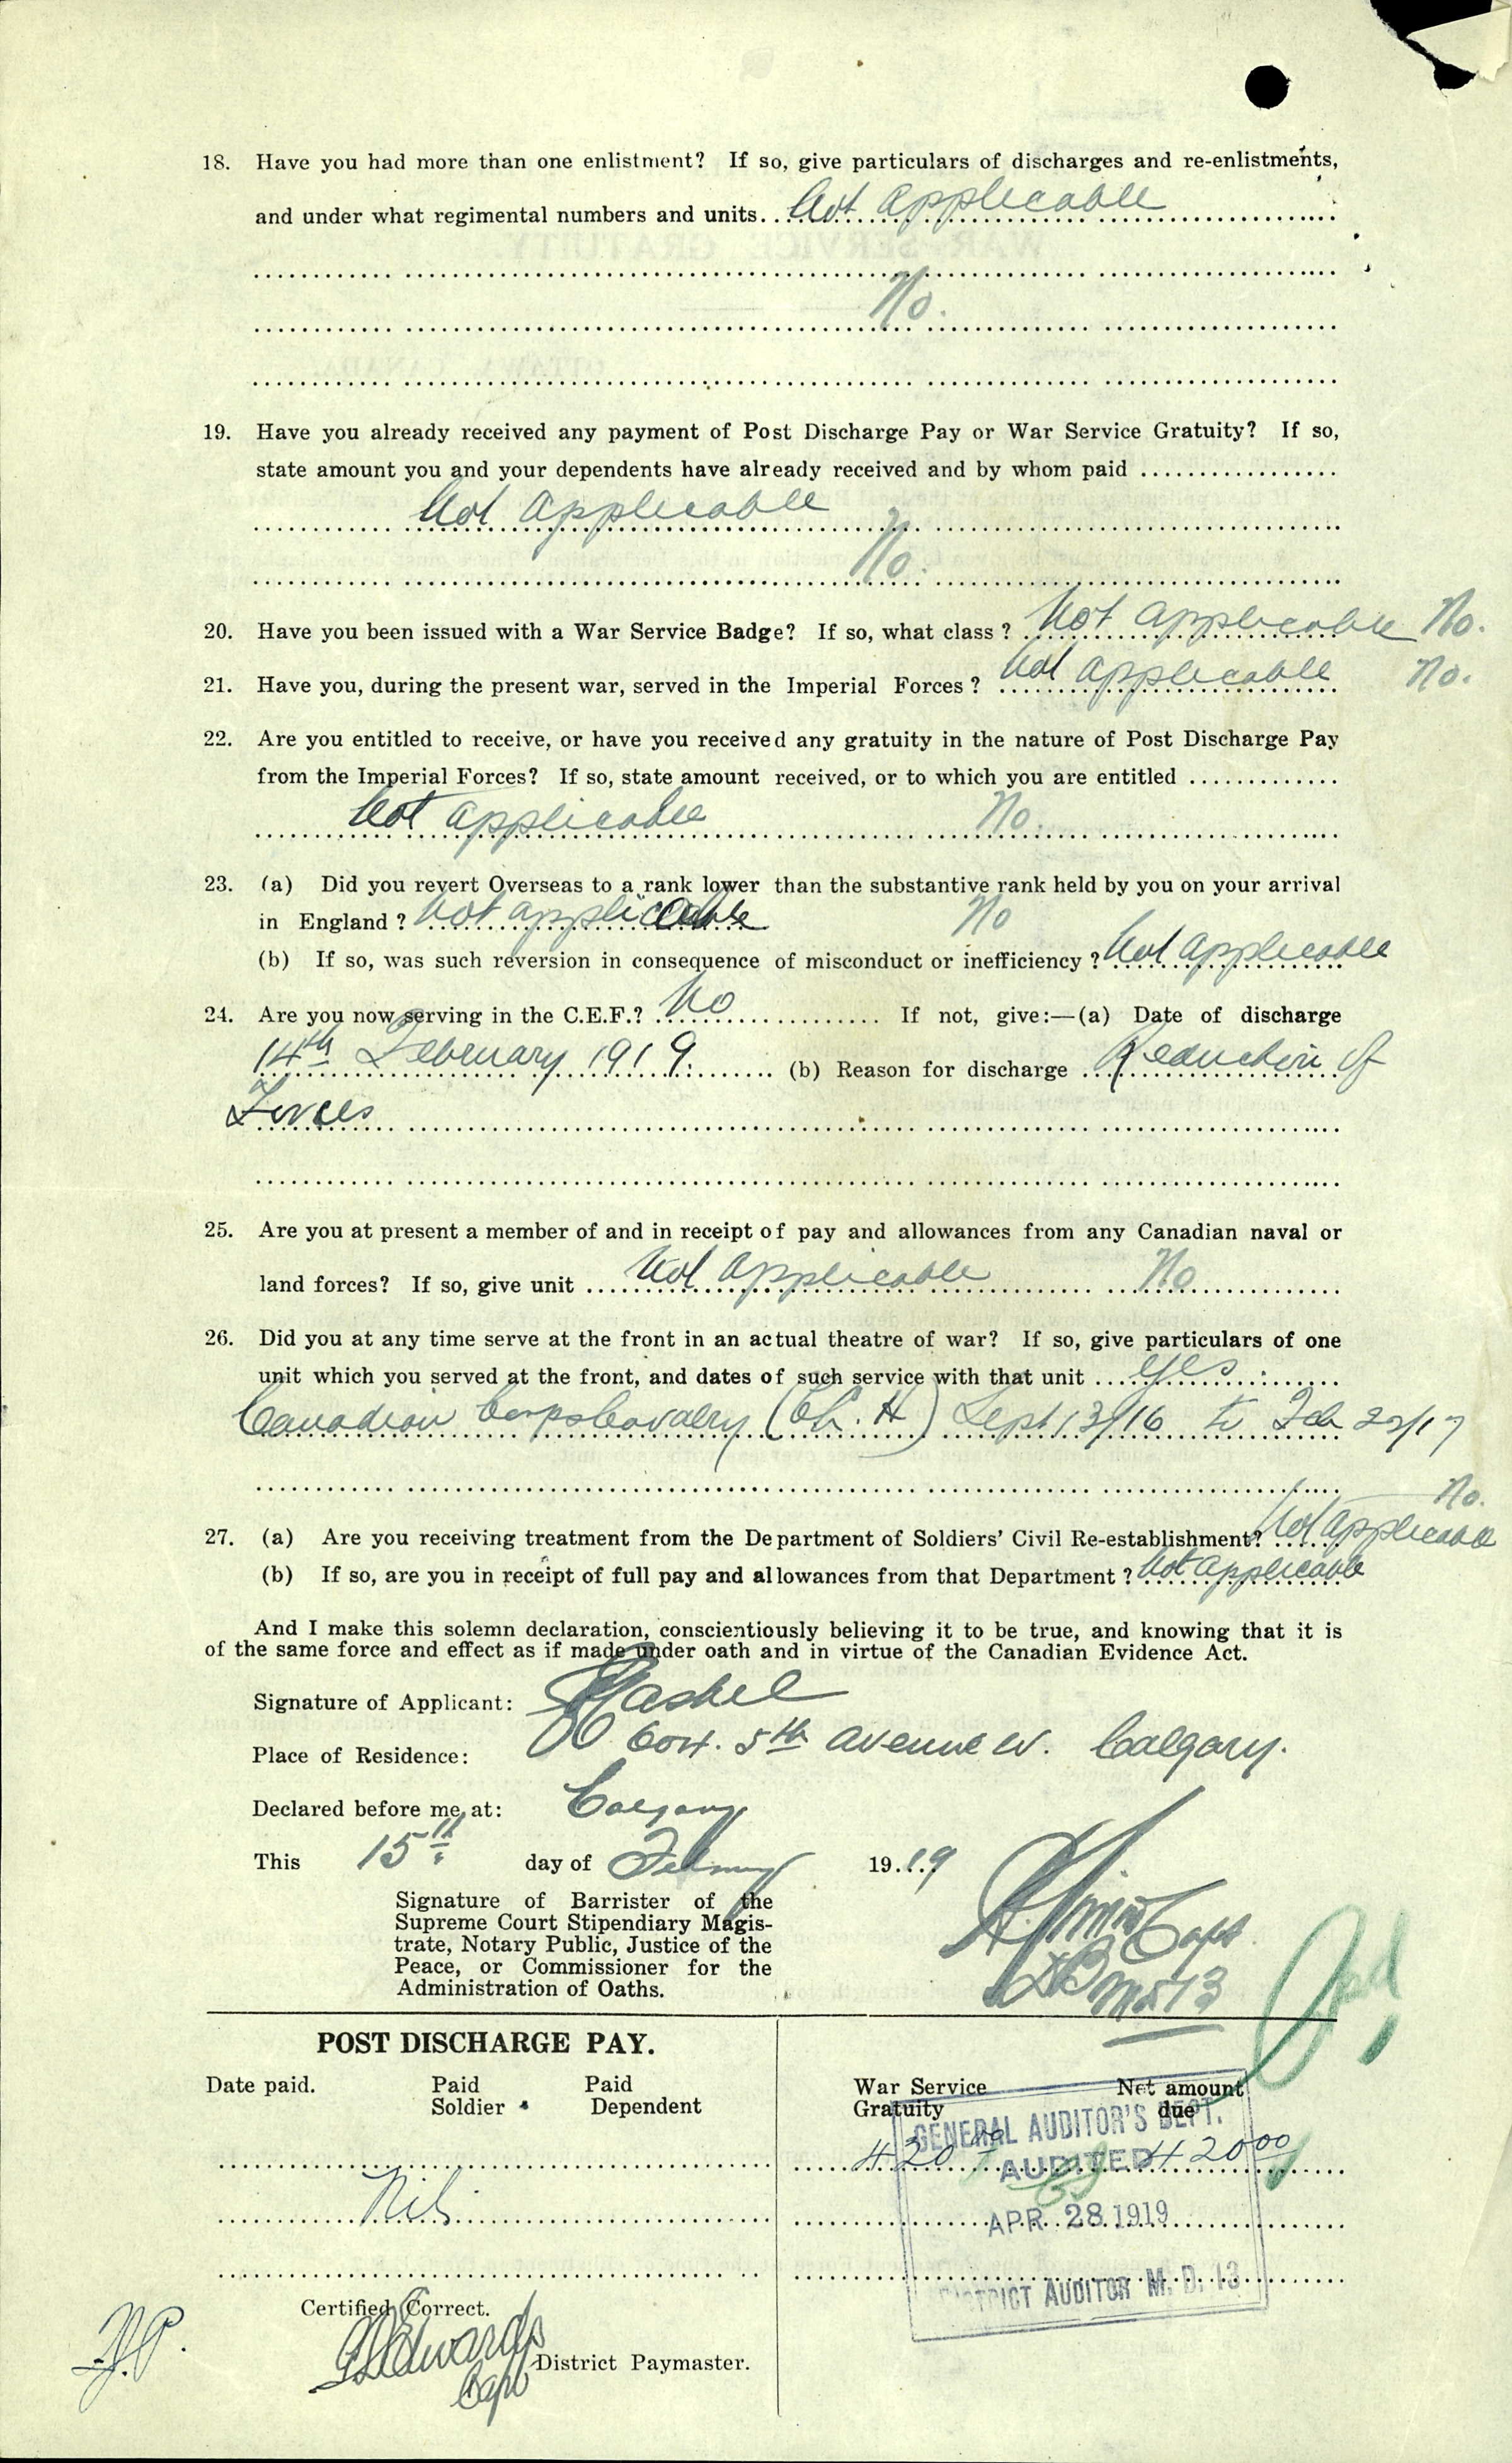 18. Have you had more than one enlistment? If so, give particulars of discharges and re-enlistments,
and under what regimental numbers and units. Not applicable
No.
19. Have you already received any payment of Post Discharge Pay or War Service Gratuity? If so,
state amount you and your dependents have already received and by whom paid
Not applicable
No.
20. Have you been issued with a War Service Badge? If so, what class? Not applicable No.
21. Have you, during the present war, served in the Imperial Forces? Not applicable No.
22. Are you entitled to receive, or have you received any gratuity in the nature of Post Discharge Pay
from the Imperial Forces? If so, state amount received, or to which you are entitled
Not applicable No.
23. (a) Did you revert Overseas to a rank lower than the substantive rank held by you on your arrival
in England? Not applicable No
(b) If so, was such reversion in consequence of misconduct or inefficiency? Not applicable
24. Are you now serving in the C.E.F.? No If not, give:—(a) Date of discharge
14th February 1919. (b) Reason for discharge Reduction of
Forces
25. Are you at present a member of and in receipt of pay and allowances from any Canadian naval or
land forces? If so, give unit Not applicable No
26. Did you at any time serve at the front in an actual theatre of war? If so, give particulars of one
unit which you served at the front, and dates of such service with that unit yes.
Canadian Corps Cavalry Sept 13/16 to Feb 22/17
No.
27. (a) Are you receiving treatment from the Department of Soldiers' Civil Re-establishment? Not applicable
(b) If so, are you in receipt of full pay and allowances from that Department? Not applicable
And I make this solemn declaration, conscientiously believing it to be true, and knowing that it is
of the same force and effect as if made under oath and in virtue of the Canadian Evidence Act.
Signature of Applicant:
Place of Residence: 5th Avenue W. Calgary.
Declared before me, at: Calgary
This 15th day of February 19.19
Signature of Barrister of the
Supreme Court Stipendiary Magis-
trate, Notary Public, Justice of the
Peace, or Commissioner for the
Administration of Oaths.
Capt
MD 13
POST DISCHARGE PAY.
Date paid. Paid Soldier Paid Dependent
War Service Gratuity Net amount due
GENERAL AUDITOR'S DEPT.
420 00 420 00
AUDITED
Nil
APR 28 1919
DISTRICT AUDITOR M. D. 13
Certified Correct.
Edwards
Capt
District Paymaster.